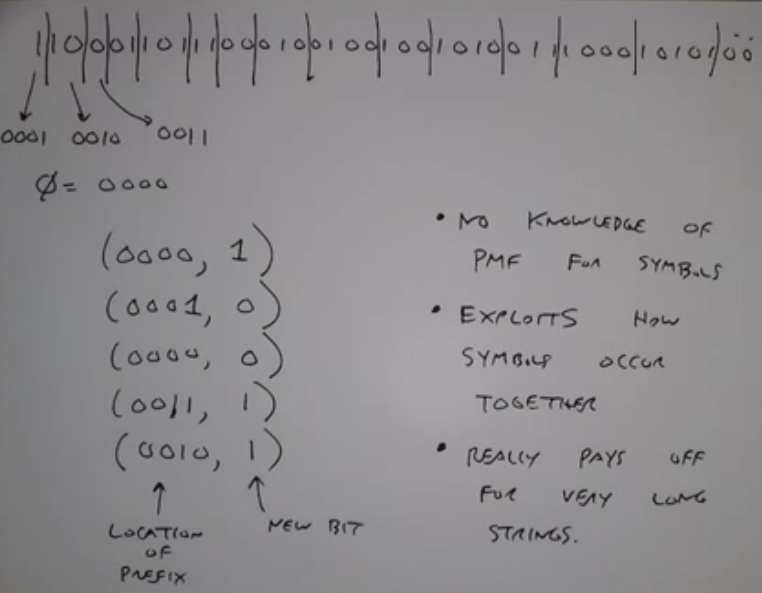 1|10|0|01|101|11|00|010|0100|100|1010|011|1000|10101|00
0001 0010 0011
Ø = 0000
(0000, 1)
(0001, 0)
(0000, 0)
(0011, 1)
(0010, 1)
LOCATION
OF
PREFIX
NEW BIT
• NO KNOWLEDGE OF
PMF FOR SYMBOLS
• EXPLOITS HOW
SYMBOLS OCCUR
TOGETHER
• REALLY PAYS OFF
FOR VERY LONG
STRINGS.